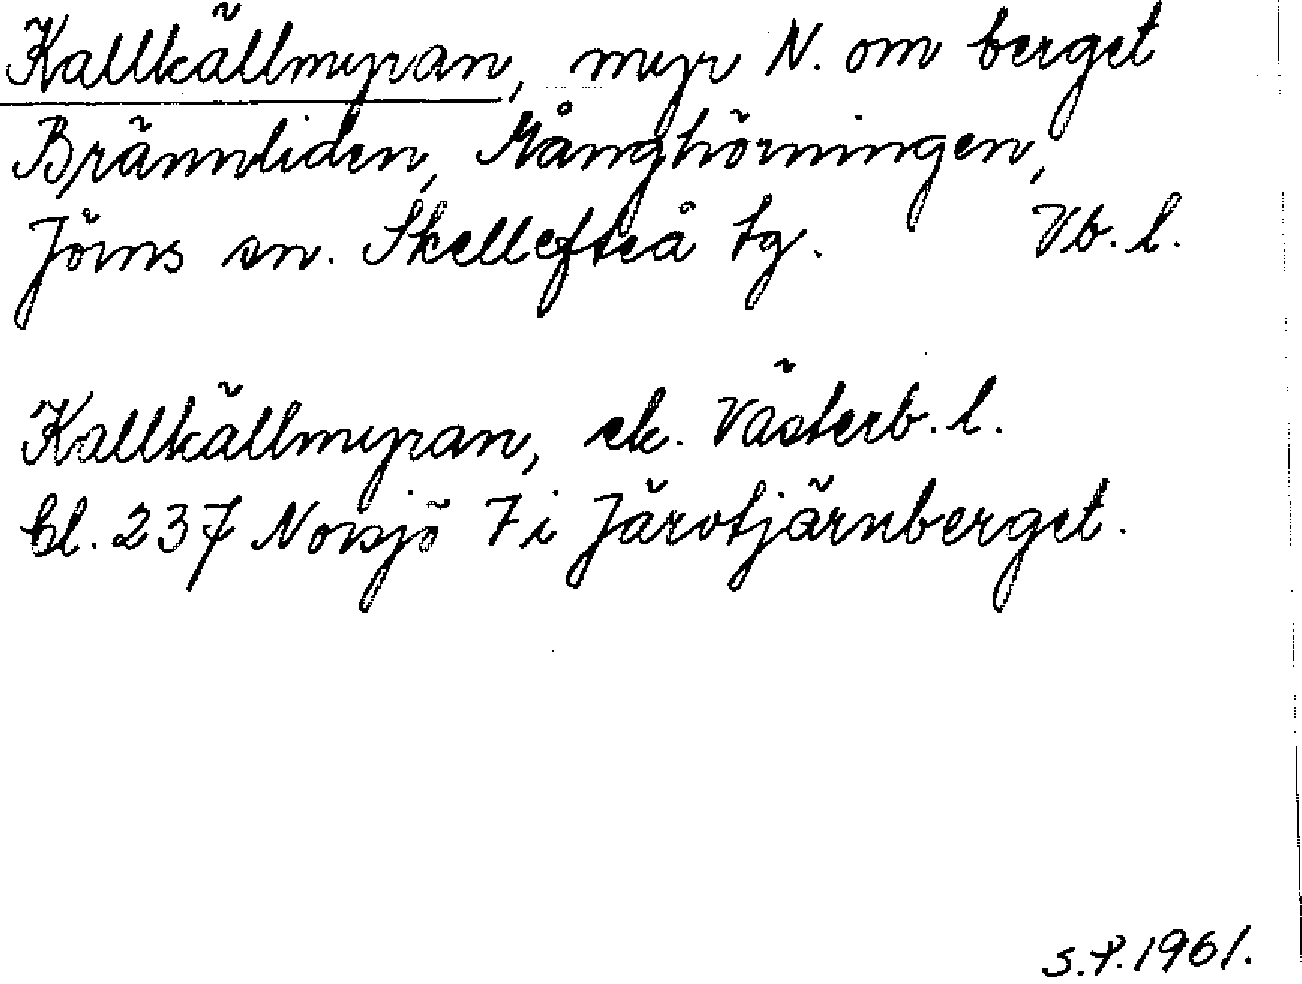 Kallkällmyran, myr N. om berget
Brännliden, Månghörningen,
Jörns sn. Skellefteå tg. Vb. l.
Kallkällmyran, ek. Västerb. l.
bl. 237 Norsjö 7 i Järvtjärnberget.
S.P. 1961.